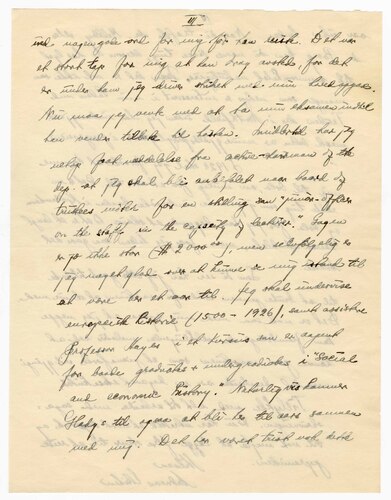 III
nogen gode ord for mig før han reiste. Det var
et stort tap for mig at han drog avsted, for det
er under ham jeg driver arbeidet med min
Nu maa jeg vente med at ta min eksamen indtil
han vender tilbake til høsten. Imidlertid har jeg
netop faat meddelelse fra acting-chairman of the
dep. at jeg skal bli anbefalet naar board of
trustees møtes for en stilling som "junior-officer
on the staff, in the capacity of lecturer." Gagen
er jo ikke stor ($ 2000.00) men selvfølgelig er
jeg meget glad over at kunne se mig istand til
at være her et aar til. Jeg skal undervise
europæisk historie (1500 - 1926), samt assistere
Professor Hayes i et kursus som er aapent
for baade graduates & undergraduates i "Social
and economic history." Naturligvis kommer
Gladys til ogsaa at bli her til aars sammen
med mig. Det har været trist nok dette